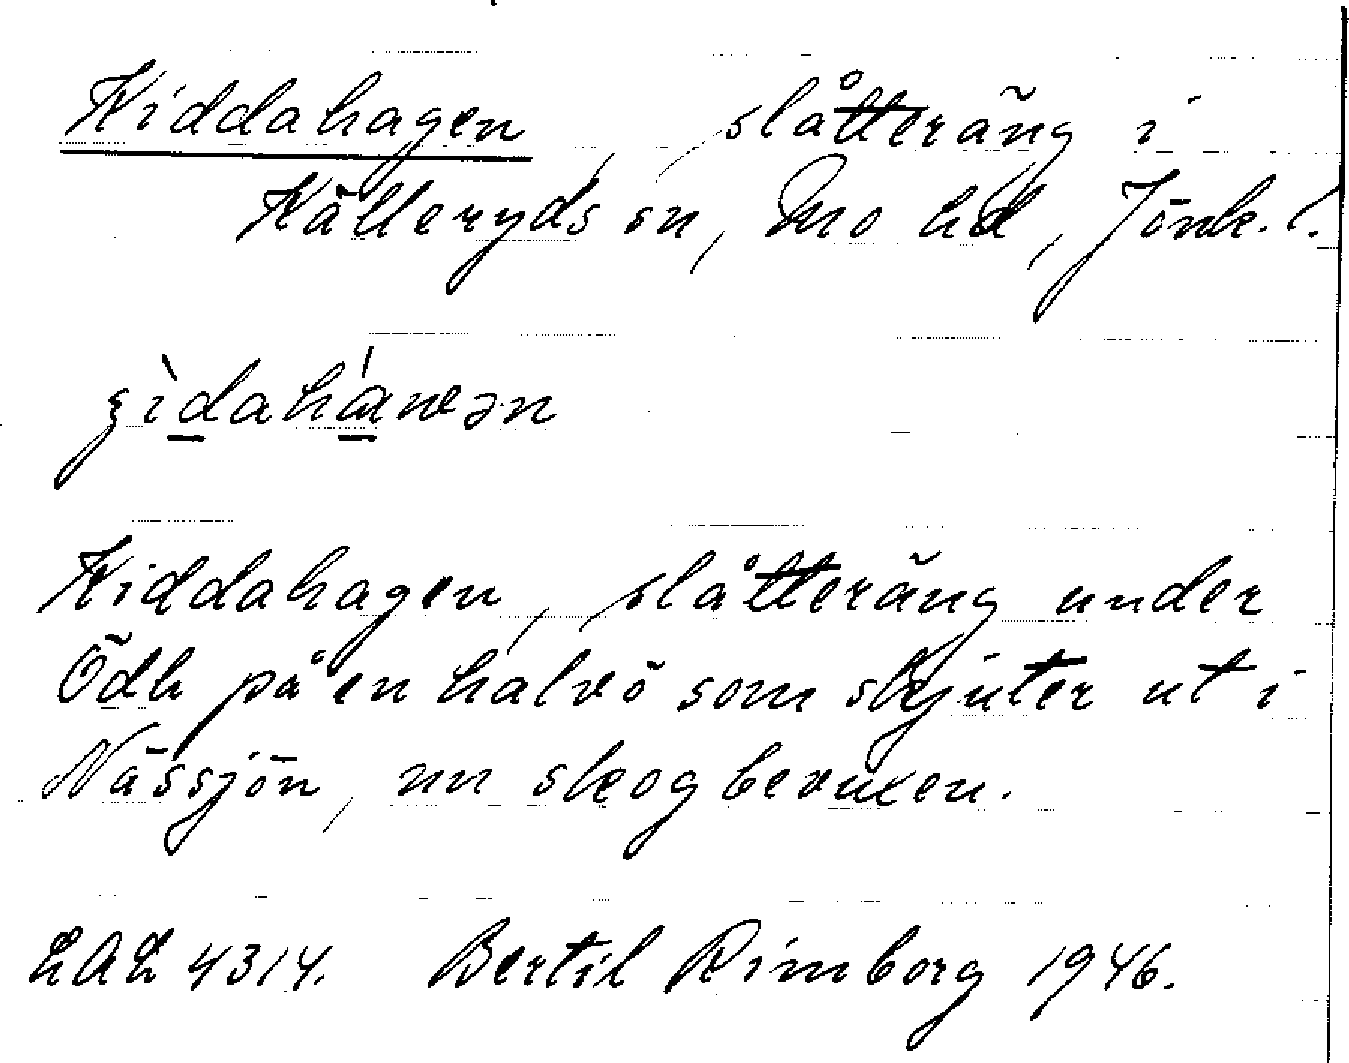 Kiddahagen, slåtteräng i
Källeryds sn, Mo hd, Jönk. l.
ʒìdahá̱wən
Kiddahagen, slåtteräng under
Ödh på en halvö som skjuter ut i
Nässjön, nu skogbevuxen.
LAL 4314. Bertil Rimborg 1946.